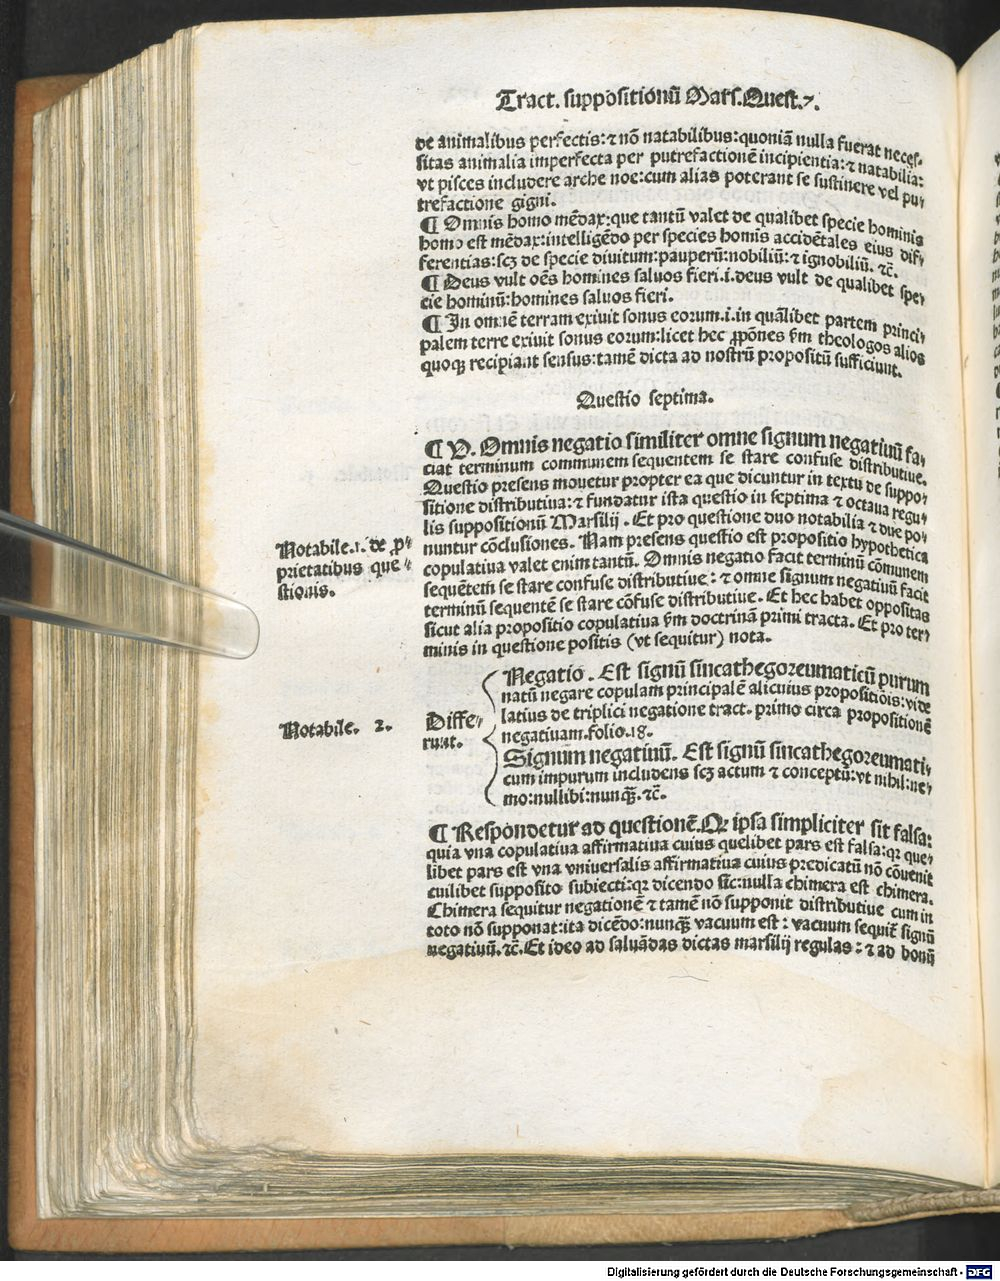 Tract. suppositionũ Mars. Quest. 7.
de animalibus perfectis: ⁊ nõ natabilibus: quoniã nulla fuerat neces-
sitas animalia imperfecta per putrefactionẽ incipientia: ⁊ natabilia:
vt pisces includere arche noe: cum alias poterant se sustinere vel pu-
trefactione gigni.
¶ Omnis homo mẽdax: que tantũ valet de qualibet specie hominis
homo est mẽdax: intelligẽdo per species homis accidẽtales eius dif-
ferentias: scʒ de specie divitum: pauperũ: nobiliũ: ⁊ ignobiliũ. ⁊c̃.
¶ Deus vult oẽs homines saluos fieri. i. deus vult de qualibet spe-
cie hominũ: homines saluos fieri.
¶ In omnẽ terram exiuit sonus eorum. i. in quãlibet partem princi-
palem terre exiuit sonus eorum: licet hec ꝓpõnes ẜm theologos alios
quoqꝫ recipiant sensus: tamẽ dicta ad nostrũ propositũ sufficiunt.
Questio septima.
¶ V. Omnis negatio similiter omne signum negatiuũ fa-
ciat terminum communem sequentem se stare confuse distributiue.
Questio presens mouetur propter ea que dicuntur in textu de suppo-
sitione distributiua: ⁊ fundatur ista questio in septima ⁊ octaua regu-
lis suppositionũ Marsilij. Et pro questione duo notabilia ⁊ due po-
nuntur cõclusiones. Nam presens questio est propositio hypothetica
copulatiua valet enim tantũ. Omnis negatio facit terminũ cõmunem
sequẽtem se stare confuse distributiue: ⁊ omne signum negatiuũ facit
terminũ sequentẽ se stare cõfuse distributiue. Et hec habet oppositas
sicut alia propositio copulatiua ẜm doctrinã primi tracta. Et pro ter-
minis in questione positis (vt sequitur) nota.
Notabile. 1. de ꝓ-
prietatibus que-
stionis.
Notabile. 2.
Diffe-
runt.
Negatio. Est signũ sincathegoreumaticũ purum
natũ negare copulam principalẽ alicuius propositiõis: vide
latius de triplici negatione tract. primo circa propositionẽ
negatiuam. folio. 18.
Signum negatiuũ. Est signũ sincathegoreumati-
cum impurum includens scʒ actum ⁊ conceptũ: vt nihil: ne-
mo: nullibi: nunqꝫ̃. ⁊c̃.
¶ Respondetur ad questionẽ. Qꝛ ipsa simpliciter sit falsa:
quia vna copulatiua affirmatiua cuius quelibet pars est falsa: qꝛ que-
libet pars est vna vniuersalis affirmatiua cuius predicatũ nõ cõuenit
cuilibet supposito subiecti: qꝛ dicendo sic: nulla chimera est chimera.
Chimera sequitur negationẽ ⁊ tamẽ nõ supponit distributiue cum in
toto nõ supponat: ita dicẽdo: nunqꝫ̃ vacuum est: vacuum sequit̃ signũ
negatiuũ. ⁊c̃. Et ideo ad saluãdas dictas marsilij regulas: ⁊ ad bonũ
Digitalisierung gefördert durch die Deutsche Forschungsgemeinschaft - DFG